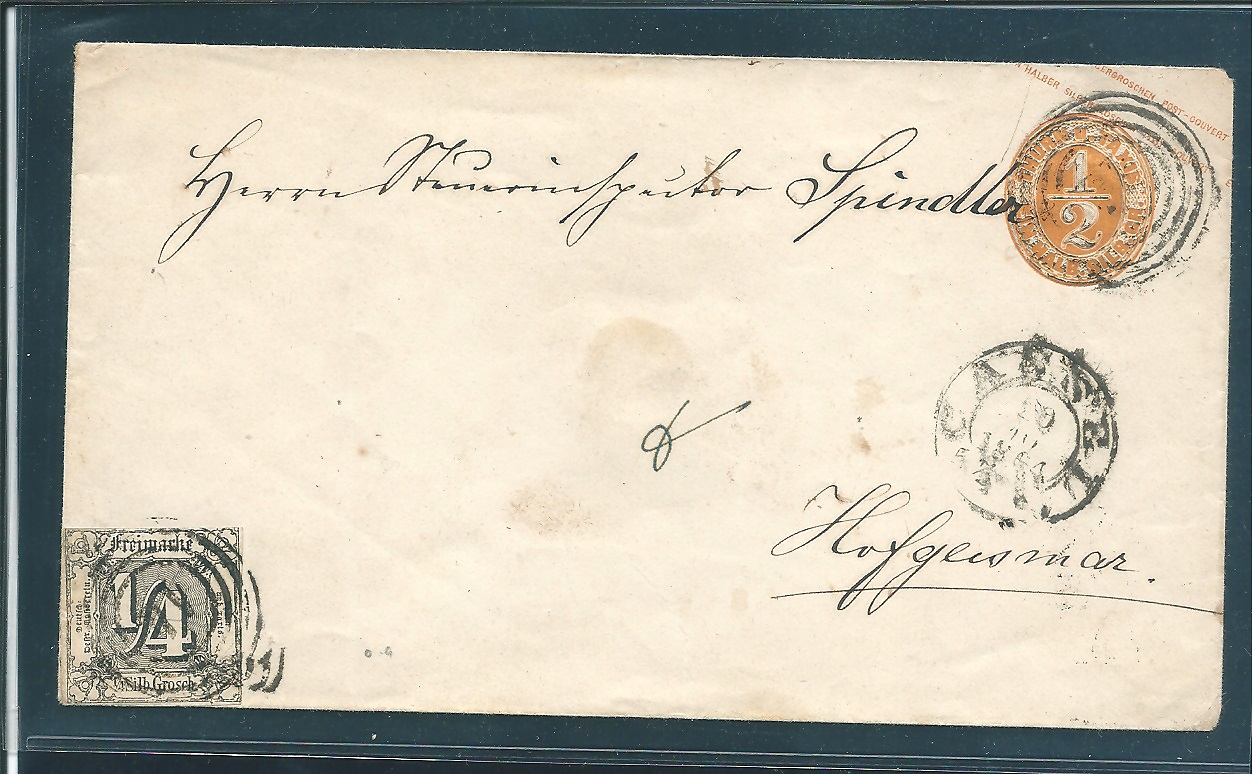 HALBER SILBERGROSCHEN POST-COUVERT
THURN U. TAXIS
1/2
EIN HALB SILB. GR.
Herrn Steuerinspector Spindler
CASSEL
Hofgeismar.
Freimarke
1/4
Silb. Grosch